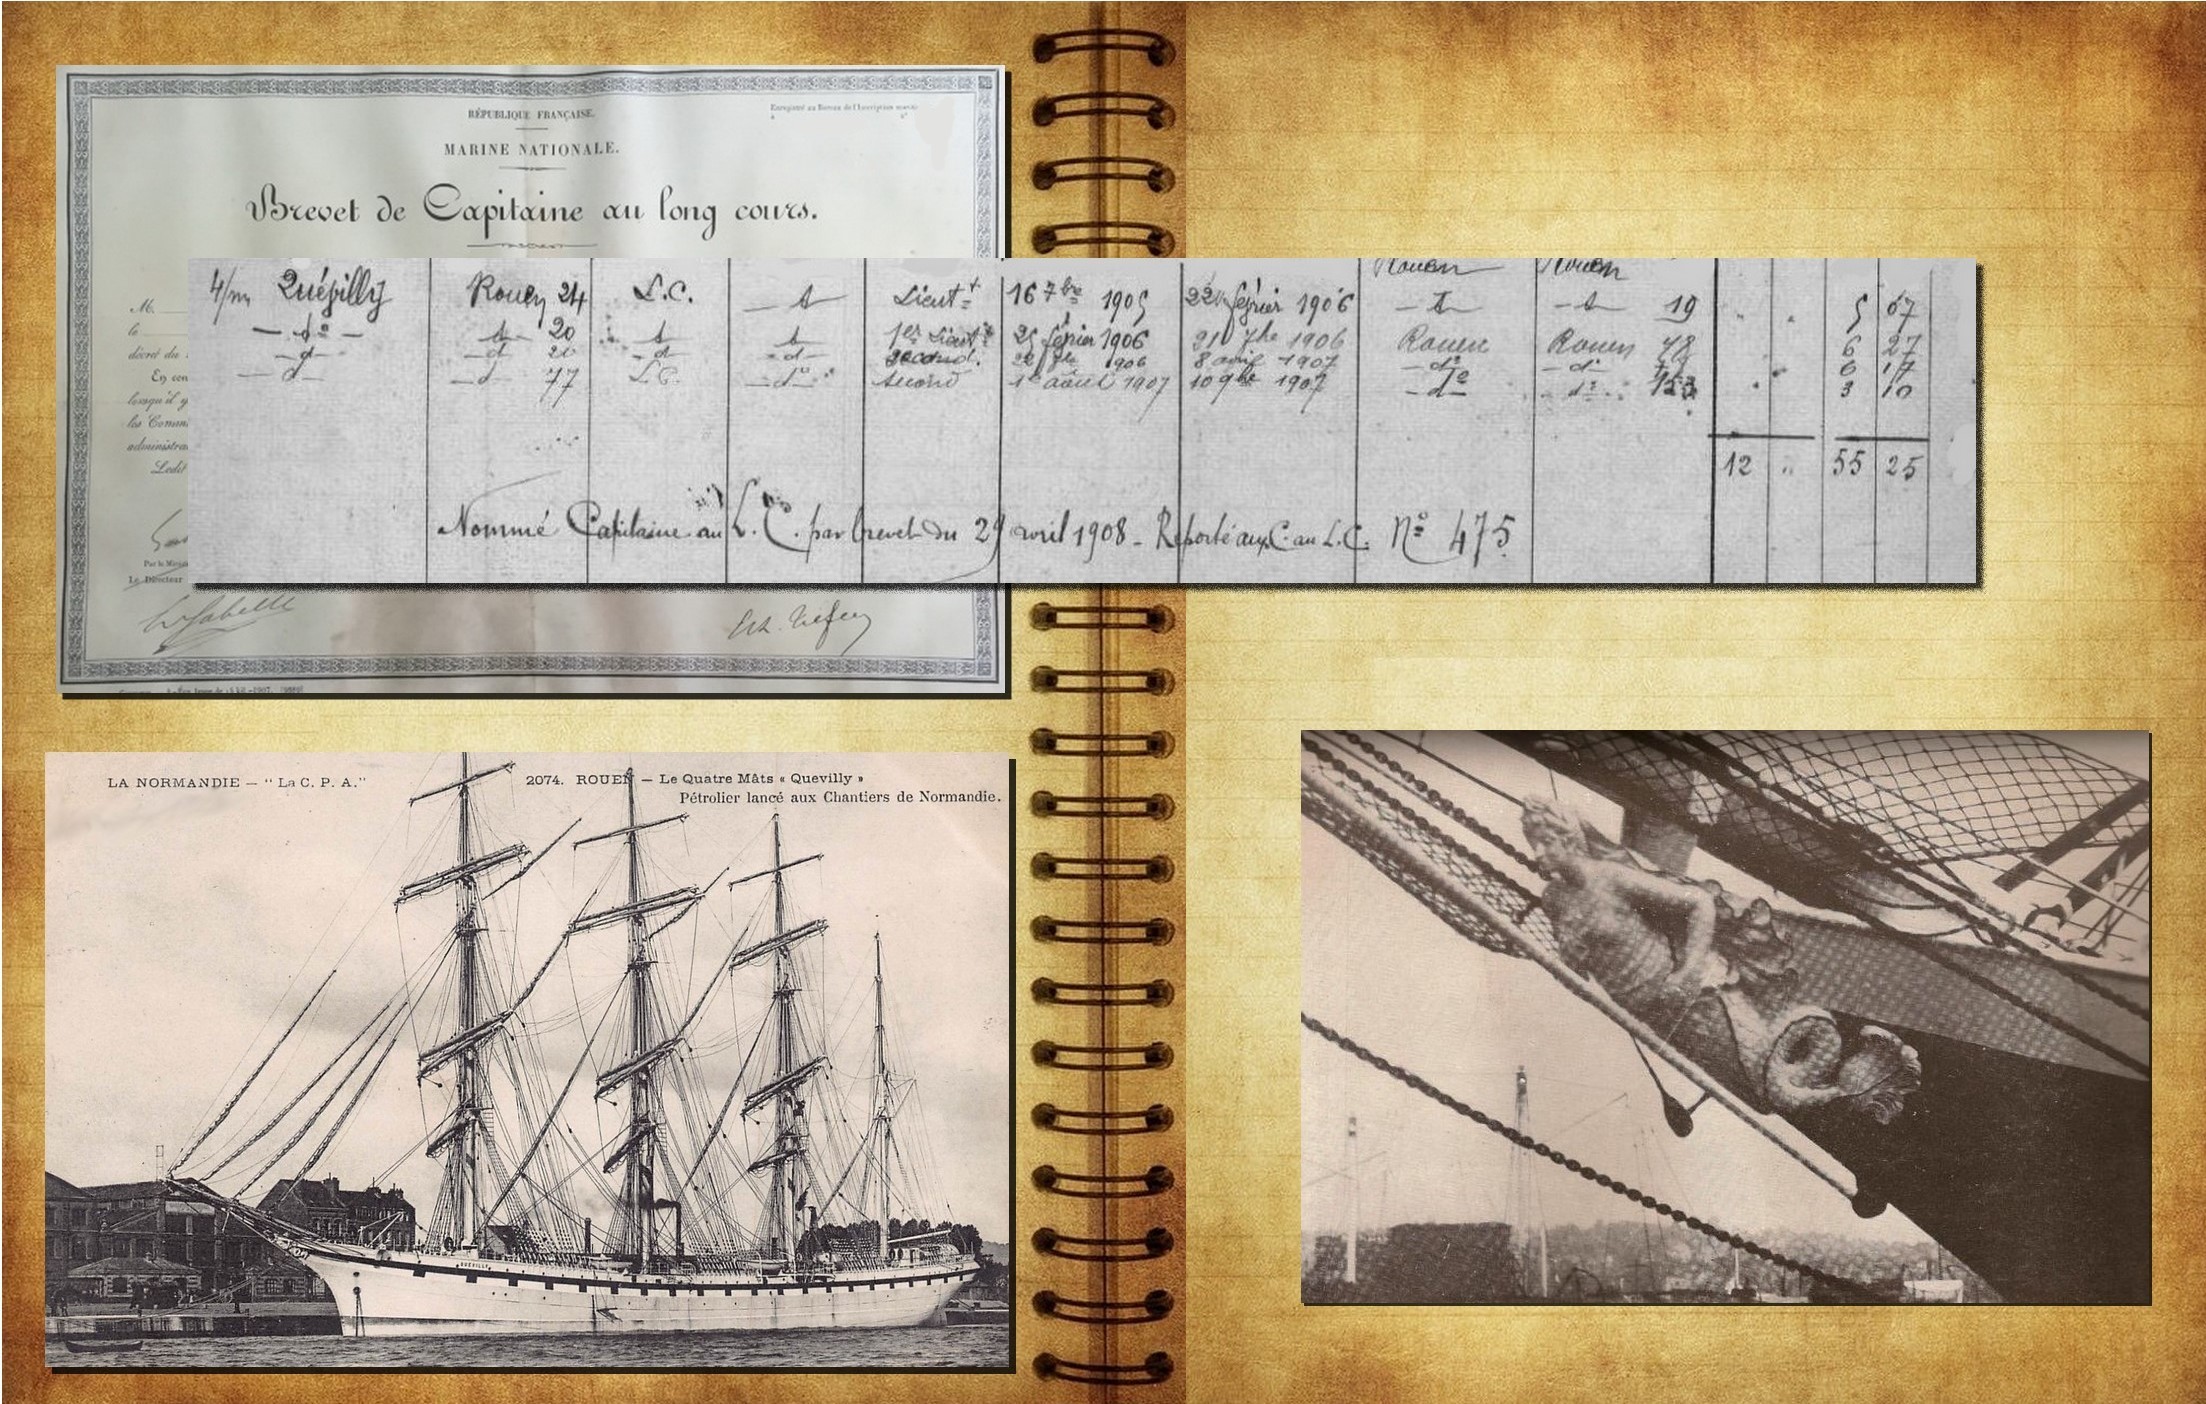 RÉPUBLIQUE FRANÇAISE.
Enregistré au Bureau de l'Inscription marit
MARINE NATIONALE.
Brevet de Capitaine au long cours.
M.
le
décret du
En con
lorsqu'il y
les Consu
administra
Ledit
Par le Minist
Le Directeur
Rouen Rouen
4/m Quévilly Rouen 24 L.C. Lieut 16 7bre 1905 22 février 1906 19 5 67
d° 20 1er Lieut 1906 21 7bre 1906 Rouen Rouen 78 6 27
d 20 d d second 1906 8 avril 1907 d° d 6 17
d d 77 L.C. d° second 1er août 1907 10 9bre 1907 d° d° 3 10
12 " 55 25
Nommé Capitaine au L.C. par brevet du 29 avril 1908 - Reporté aux C. au L.C. N° 475
LA NORMANDIE — "La C. P. A."
2074. ROUEN — Le Quatre Mâts « Quevilly »
Pétrolier lancé aux Chantiers de Normandie.
QUEVILLY